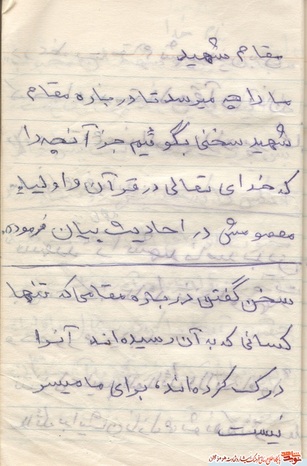 مقام شهید
ما را هم میرسد تا در باره مقام
شهید سخنی بگوئیم جز آنچه را
که خدای تعالی در قرآن و اولیاء
معصومش در احادیث بیان فرموده.
سخن گفتن در باره مقامی که تنها
کسانی که به آن رسیده‌اند آنرا
درک کرده‌اند، برای ما میسر
نیست